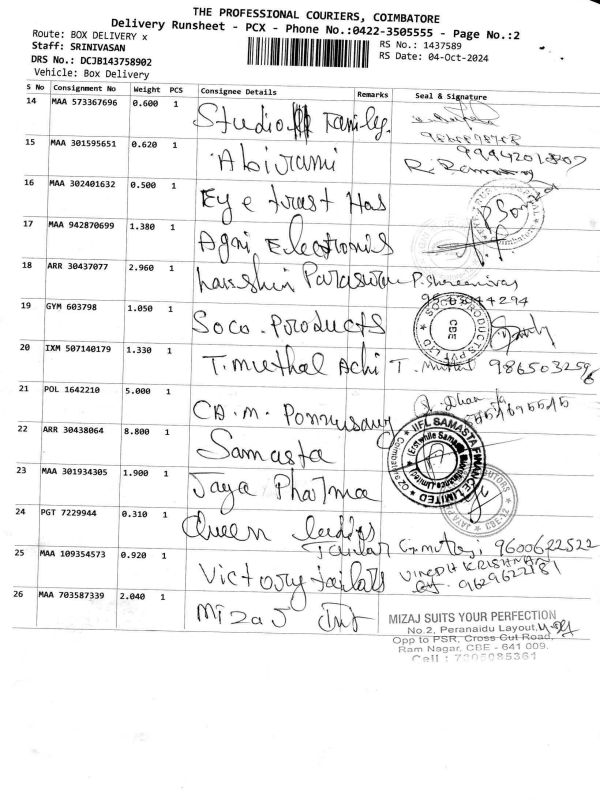 THE PROFESSIONAL COURIERS, COIMBATORE
Delivery Runsheet - PCX - Phone No.:0422-3505555 - Page No.:2
Route: BOX DELIVERY x
RS No.: 1437589
Staff: SRINIVASAN
RS Date: 04-Oct-2024
DRS No.: DCJB143758902
Vehicle: Box Delivery
S No Consignment No Weight PCS Consignee Details Remarks Seal & Signature
14 MAA 573367696 0.600 1 Studio Family
15 MAA 301595651 0.620 1 Abirami
16 MAA 302401632 0.500 1 Eye trust Hos
17 MAA 942870699 1.380 1 Agni Electronics
18 ARR 30437077 2.960 1
19 GYM 603798 1.050 1 Soco. Products
20 IXM 507140179 1.330 1 T. Muthal Achi T.
21 POL 1642210 5.000 1
22 ARR 30438064 8.800 1 Samasta
IIFL SAMASTA FINANCE LIMITED
23 MAA 301934305 1.900 1 Jaya Pharma
24 PGT 7229944 0.310 1 Queen
Tailar 9600622522
25 MAA 109354573 0.920 1 Victory tailars VINOTH KRISHNAN
9629622181
26 MAA 703587339 2.040 1 Mizaj
MIZAJ SUITS YOUR PERFECTION
No.2, Peranaidu Layout,
Opp to PSR, Cross Cut Road,
Ram Nagar, CBE - 641 009.
Cell : 7305085361